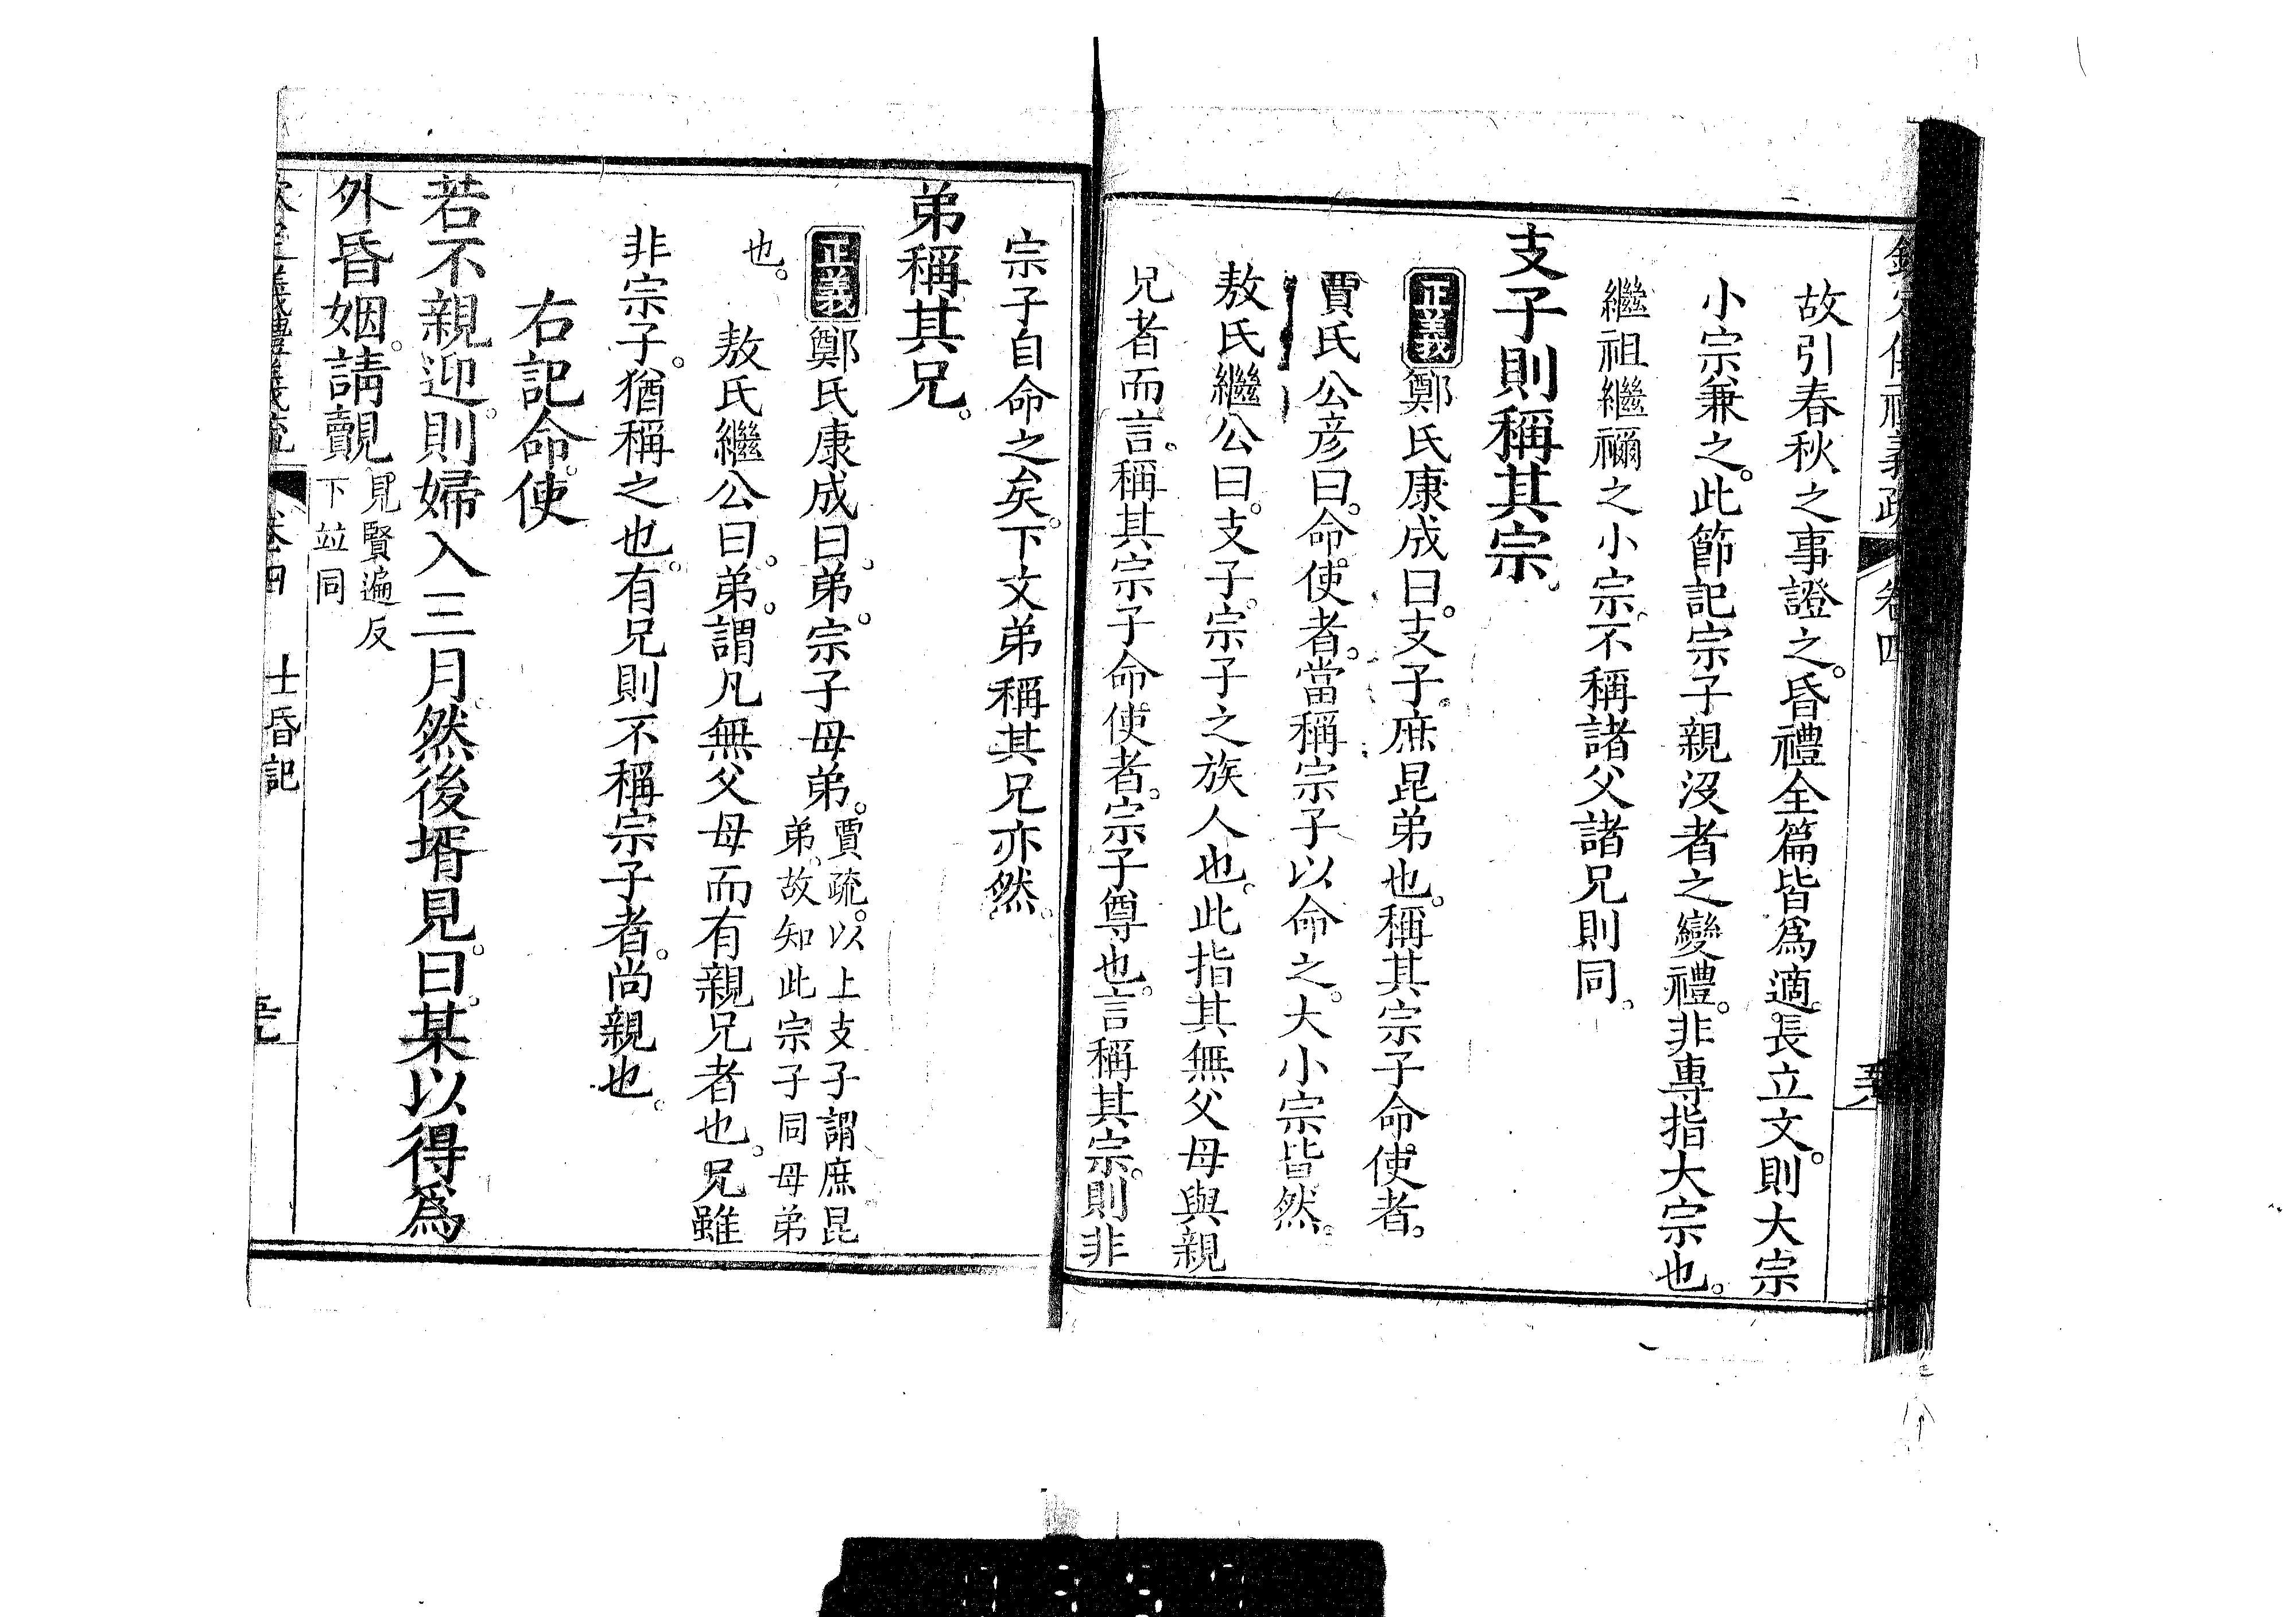 欽定儀禮義疏 卷四
故引春秋之事證之。昏禮全篇皆爲適長立文。則大宗
小宗兼之。此節記宗子親沒者之變禮。非專指大宗也。
繼祖繼禰之小宗。不稱諸父諸兄則同。
支子則稱其宗。
正義 鄭氏康成曰。支子。庶昆弟也。稱其宗子命使者。
賈氏公彦曰。命使者。當稱宗子以命之。大小宗皆然。
敖氏繼公曰。支子。宗子之族人也。此指其無父母與親
兄者而言。稱其宗子命使者。宗子尊也。言稱其宗。則非
宗子自命之矣。下文弟稱其兄亦然。
弟稱其兄。
正義 鄭氏康成曰。弟。宗子母弟。賈疏。以上支子謂庶昆
弟。故知此宗子同母弟
也。 敖氏繼公曰。弟。謂凡無父母而有親兄者也。兄雖
非宗子。猶稱之也。有兄則不稱宗子者。尚親也。
右記命使
若不親迎。則婦入三月。然後壻見。曰。某以得爲
外昏姻。請覿見賢遍反
下竝同
欽定儀禮義疏 卷四 士昏記